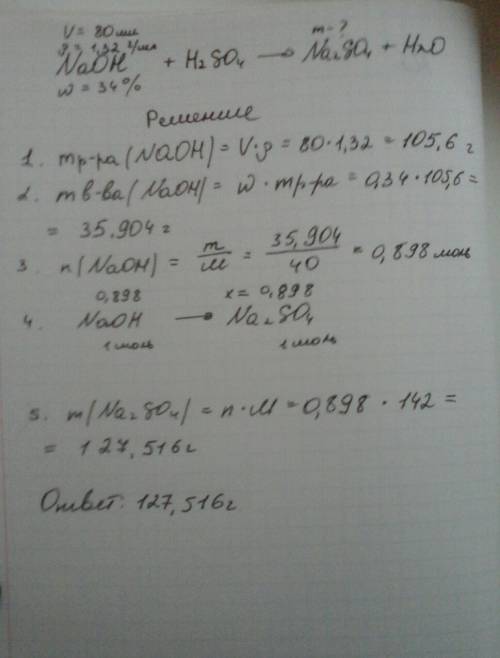 V = 80 мл m - ?
ρ = 1,32 г/мл
NaOH + H₂SO₄ → Na₂SO₄ + H₂O
w = 34%
Решение
1. mр-ра (NaOH) = V·ρ = 80·1,32 = 105,6 г
2. mв-ва (NaOH) = w · mр-ра = 0,34 · 105,6 =
= 35.904 г
3. n(NaOH) = m/M = 35,904/40 = 0,898 моль
0,898 x = 0,898
4. NaOH → Na₂SO₄
1 моль 1 моль
5. m(Na₂SO₄) = n·M = 0,898 · 142 =
= 127,516 г
Ответ: 127,516 г